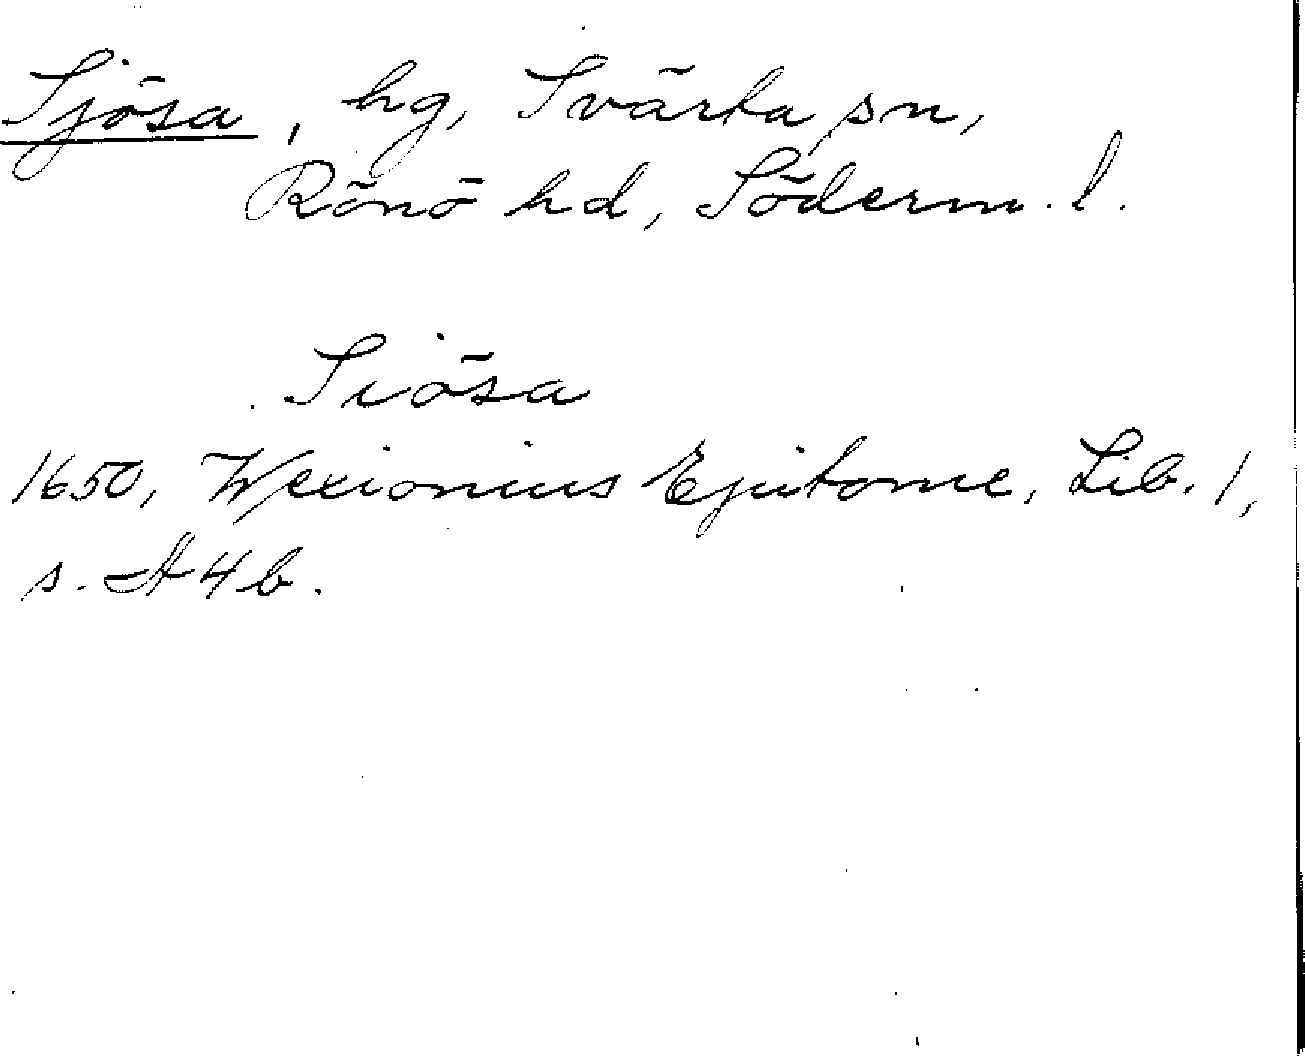 Sjösa, hg, Svärta sn,
Rönö hd, Söderm. l.
Siösa
1650, Wexionius Epitome, Lib. 1,
s. H4b.